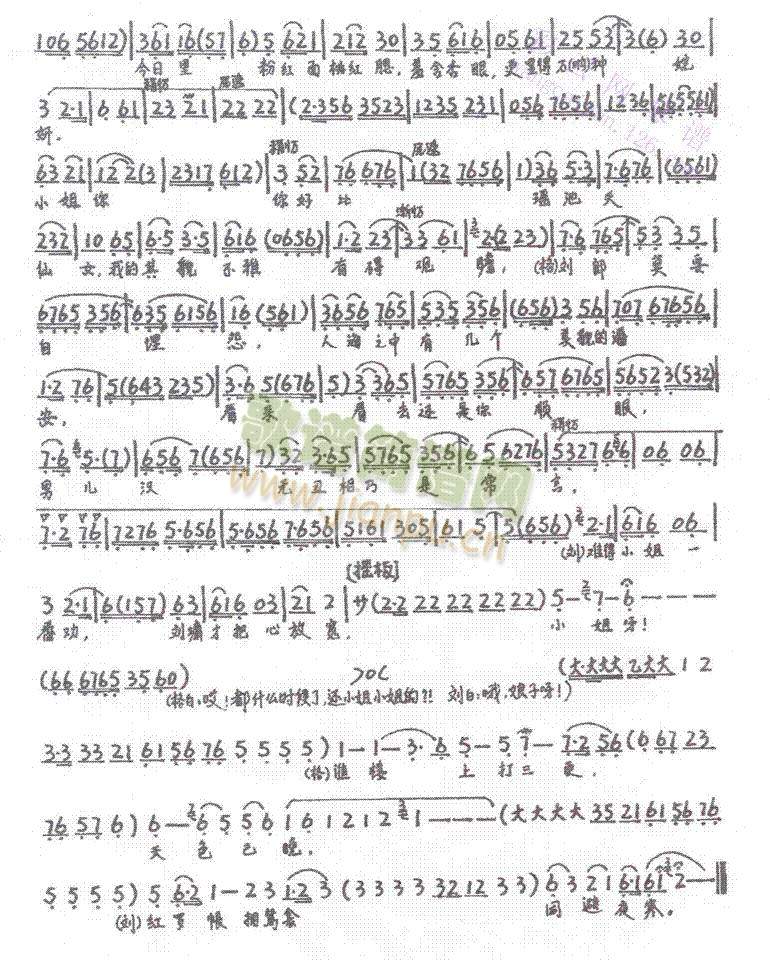 106 5612) | 361 16(57 | 6) 5 621 | 212 30 | 35 616 | 05 61 | 25 53 | 3(6) 30 |
今日里 粉红面桃红腮，羞含杏眼，更显得万(呐)种
稍忙 尾速
3 2·1 | 6 61 | 23 21 | 22 22 | (2·356 3523 | 1235 231 | 056 7656 | 1236 | 565561 |
娇。
稍忙 尾速
63 21 | 122(3 | 2317 612) | 3 52 | 76 676 | 1(32 7656 | 1) 36 5·3 | 7·676 | (6561)
小姐你 你好比 瑶池天
渐忙
232 | 10 65 | 6·5 3·5 | 616 (0656) | 1·2 23 | 33 61 | 2(2 23) | 7·6 765 | 53 35 |
仙女，我的其貌不雅 有碍观瞻，(梧)刘郎莫要
6765 356 | 635 6156 | 16 (561) | 3656 765 | 535 356 | (656) 3 56 | 707 67656 |
自惺怨， 人海之中有几个 美貌的潘
1·2 76 | 5(643 235) | 3·6 5(676 | 5) 3 365 | 5765 356 | 657 6765 | 5652 3(532)
安， 看来看去还是你顺眼，
稍忙
7·6 5·(7) | 656 7(656 | 7) 32 3·65 | 5765 356 | 65 6276 | 5327 66 | 06 06 |
男儿汉 无丑相乃是常言，
7·2 76 | 7276 5·656 | 5·656 7·656 | 5161 305 | 61 5 | 5(656) 2·1 | 616 06 |
(刘)难得小姐一
[摇板]
3 2·1 | 6(157) 63 | 616 03 | 21 2 | サ (2·2 22 22 22 22 22) 5— 7— 6———
番劝， 刘璃才把心放宽， 小姐呀！
(66 6765 3560) (大·大大大 乙大大 12
(梧白：哎！都什么时候了，还小姐小姐的?! 刘白：哦，娘子呀！)
3·3 33 21 61 56 76 5 5 5 5) 1—1—3·6 5—5 7— 7·2 56 (6 67 23
(梧)谁楼上打三更，
76 57 6) 6— 6 5 5 6 1 6 1 2 1 2 1——— (大大大大 35 21 61 56 76
天色已晚，
5 5 5 5) 5 6·2 1—23 1·2 3 (3 3 3 3 32 12 3 3) 6 3 2 1 6·1 61 2—
(刘)红罗帐相鸳衾 回避夜寒。